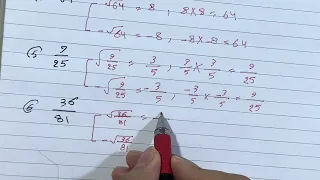 √64 = 8 , 8×8 = 64
-√64 = -8 , -8×-8 = 64
⑤ 9/25 √9/25 = 3/5 , 3/5 × 3/5 = 9/25
-√9/25 = -3/5 , -3/5 × -3/5 = 9/25
⑥ 36/81 √36/81 =
-√36/81